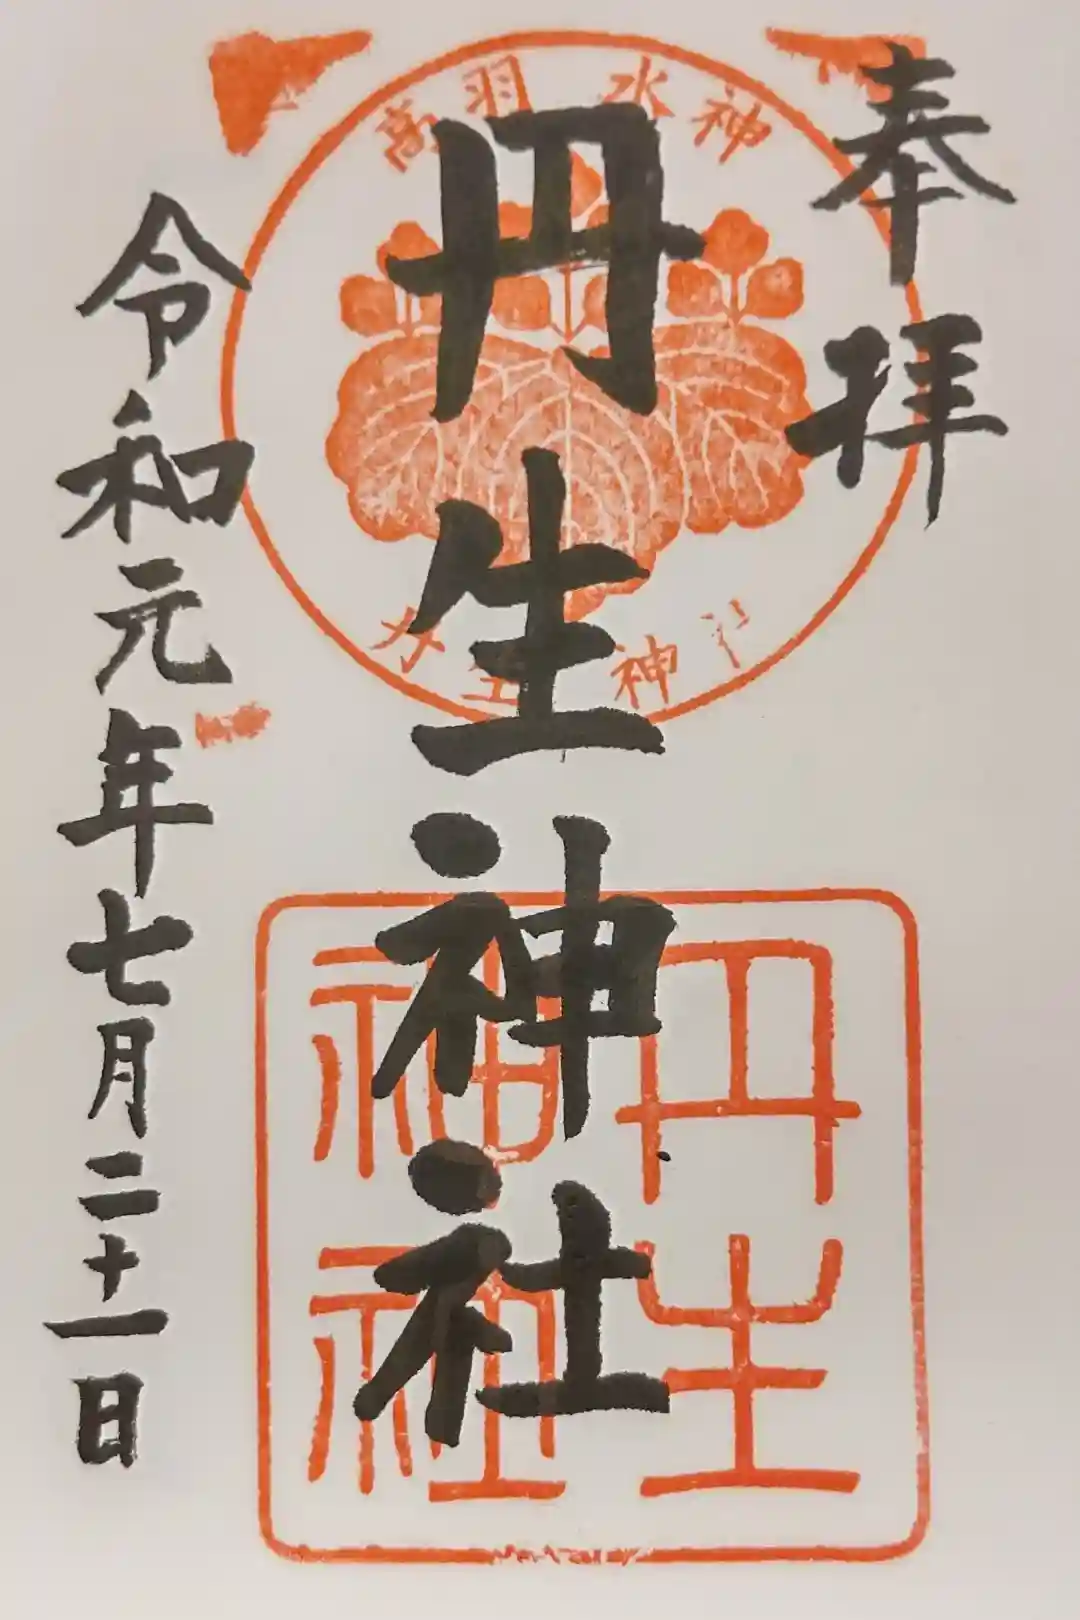 奉拝
高羽 水神
丹生神社
丹生神社
丹生神社
令和元年七月二十一日